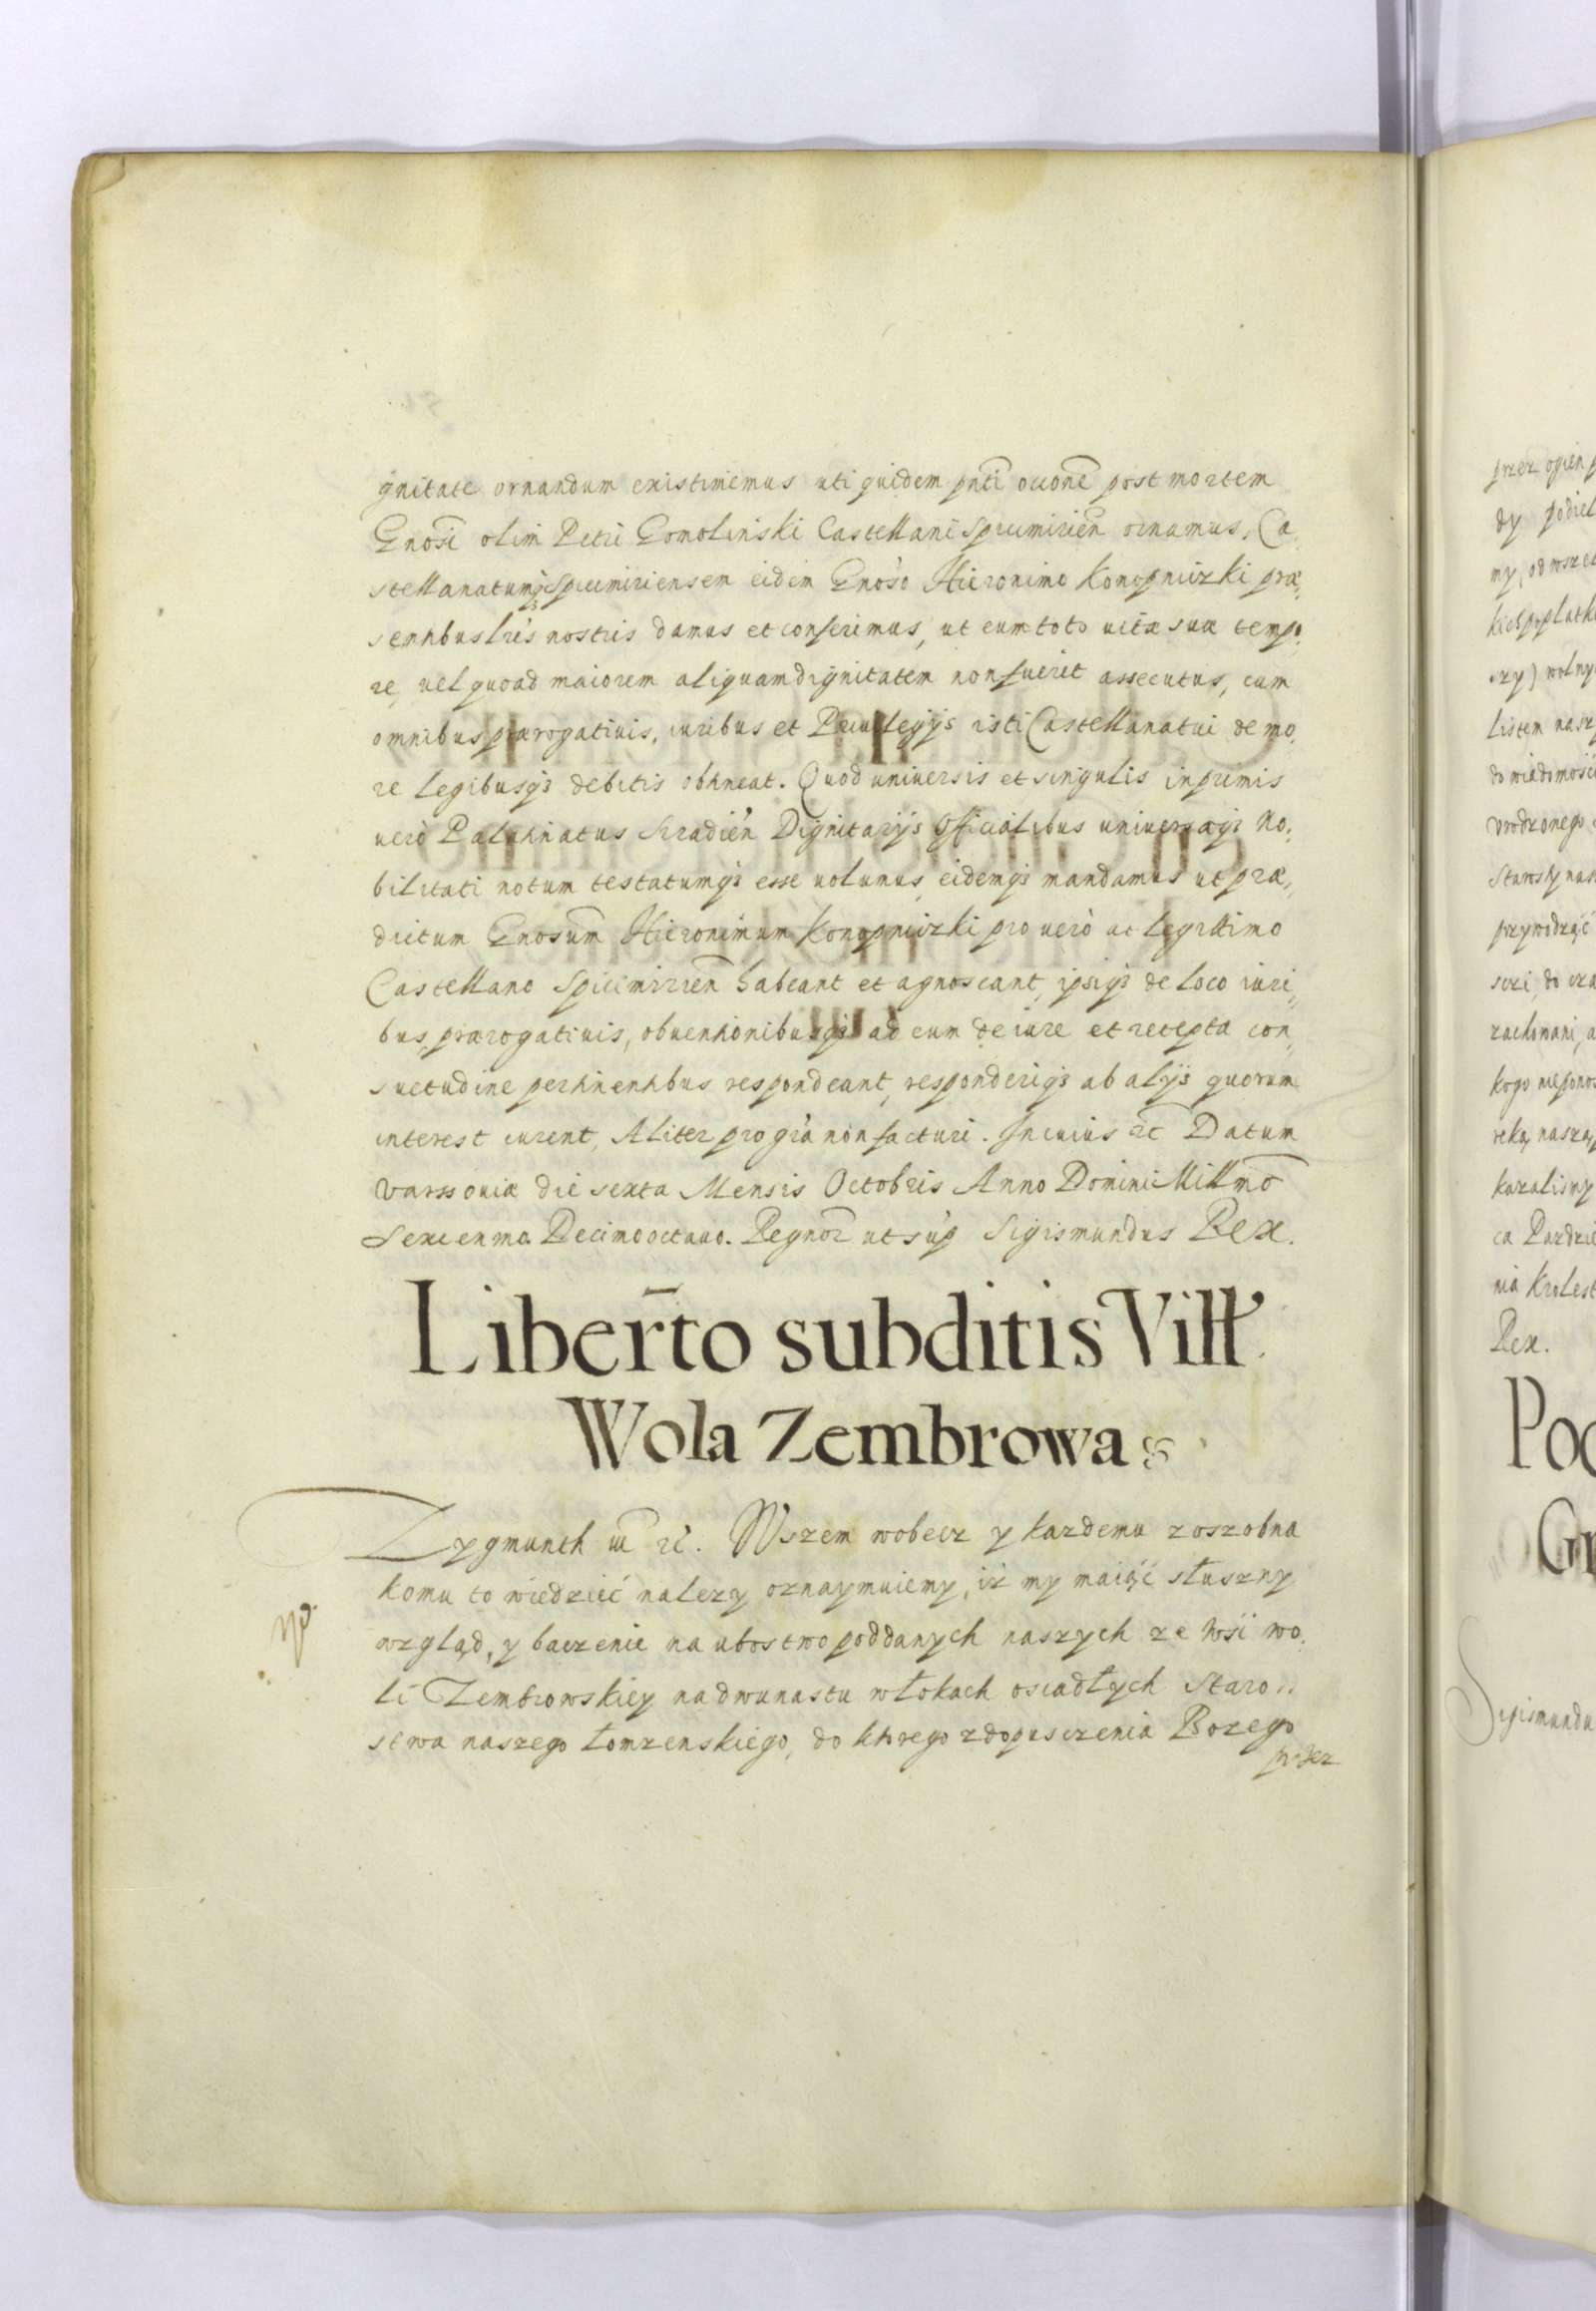 gnitate ornandum existimemus uti quidem pnti occone post mortem
Gnosi olim Petri Gomolinski Castellani Spicimirien ornamus, Ca,
stellanatumq3 Spicimiriensem eidem Gnoso Hieronimo Konopniczki præ,
sentibus lris nostris damus et conferimus, ut eum toto uitæ suæ tempo,
re, uel quoad maiorem aliquam dignitatem non fuerit assecutus, cum
omnibus prærogatiuis, iuribus et Priuilegijs isti Castellanatui de mo,
re legibusq3 debitis obtineat. Quod uniuersis et singulis inprimis
uerò Palatinatus Siradien Dignitarijs Officialibus uniuersæq3 No,
bilitati notum testatumq3 esse uolumus, eidemq3 mandamus ut præ,
dictum Gnosum Hieronimum Konopniczki pro uerò ac legitimo
Castellano Spicimirien habeant et agnoscant, ipsiq3 de loco iuri,
bus, prærogatiuis, obuentionibusq3 ad eum de iure et recepta con,
suetudine pertinentibus respondeant, responderiq3 ab alijs quorum
interest curent, Aliter pro gra non facturi. In cuius rc Datum
Varssouiæ die sexta Mensis Octobris Anno Domini Millmo
Sexcenmo. Decimo octauo. Regnor ut sup Sigismundus Rex.
Liberto subditis Vill
Wola Zembrowa
Zygmunth iii rc. Wszem wobecz y kazdemu zoszobna
komu to wiedzieć nalezy oznaymuiemy, iż my maiąć słuszny
wzgląd, y baczenie na ubostwo poddanych naszych ze Wsi wo,
li Zembrowskiey na dwunastu włokach osiadłych Staro
stwa naszego Łomzenskiego, do ktorego zdopusczenia Bozego
przez
przez ogien
dy
my, od wszel
wolny
Listem nasz
do wiadomośći
Vrodzonego
przywodząć
zachowani, a
ręką naszą
kazalismy
nia Krolest
Rex.
Poc
Gr
Sigismundu